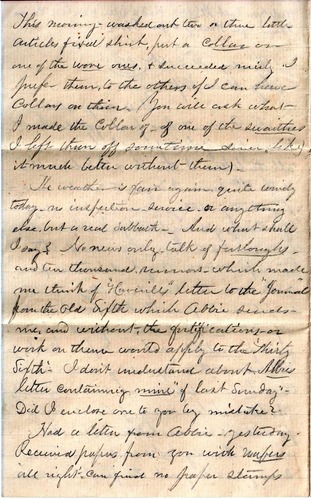 This morning - washed out two or three little
articles fixed shirt, put a Collar on
one of the wove ones, & succeeded nicely I
prefer them, to the others if I can have
Collars on them. You will ask what
I made the Collar of - of one of the
I left them off sometime since, like
it much better without them).
The weather is fair again quite windy
today - no inspection - service or anything
else but a real Sabbath - And what shall
I say? No news only, talk of furloughs -
and ten thousand rumors - which made
me think of "Haverill" letter to the "Journal
from the Old Fifth which Abbie sends
me, and without, the fortifications or
work on them would apply to the "Thirty
Fifth" - I dont understand about Abbies
letter containing mine "of last Sunday" -
Did I enclose one to you by mistake?
Had a letter from Abbie - yesterday.
Received papers from you with
all right - Can find no paper stamps